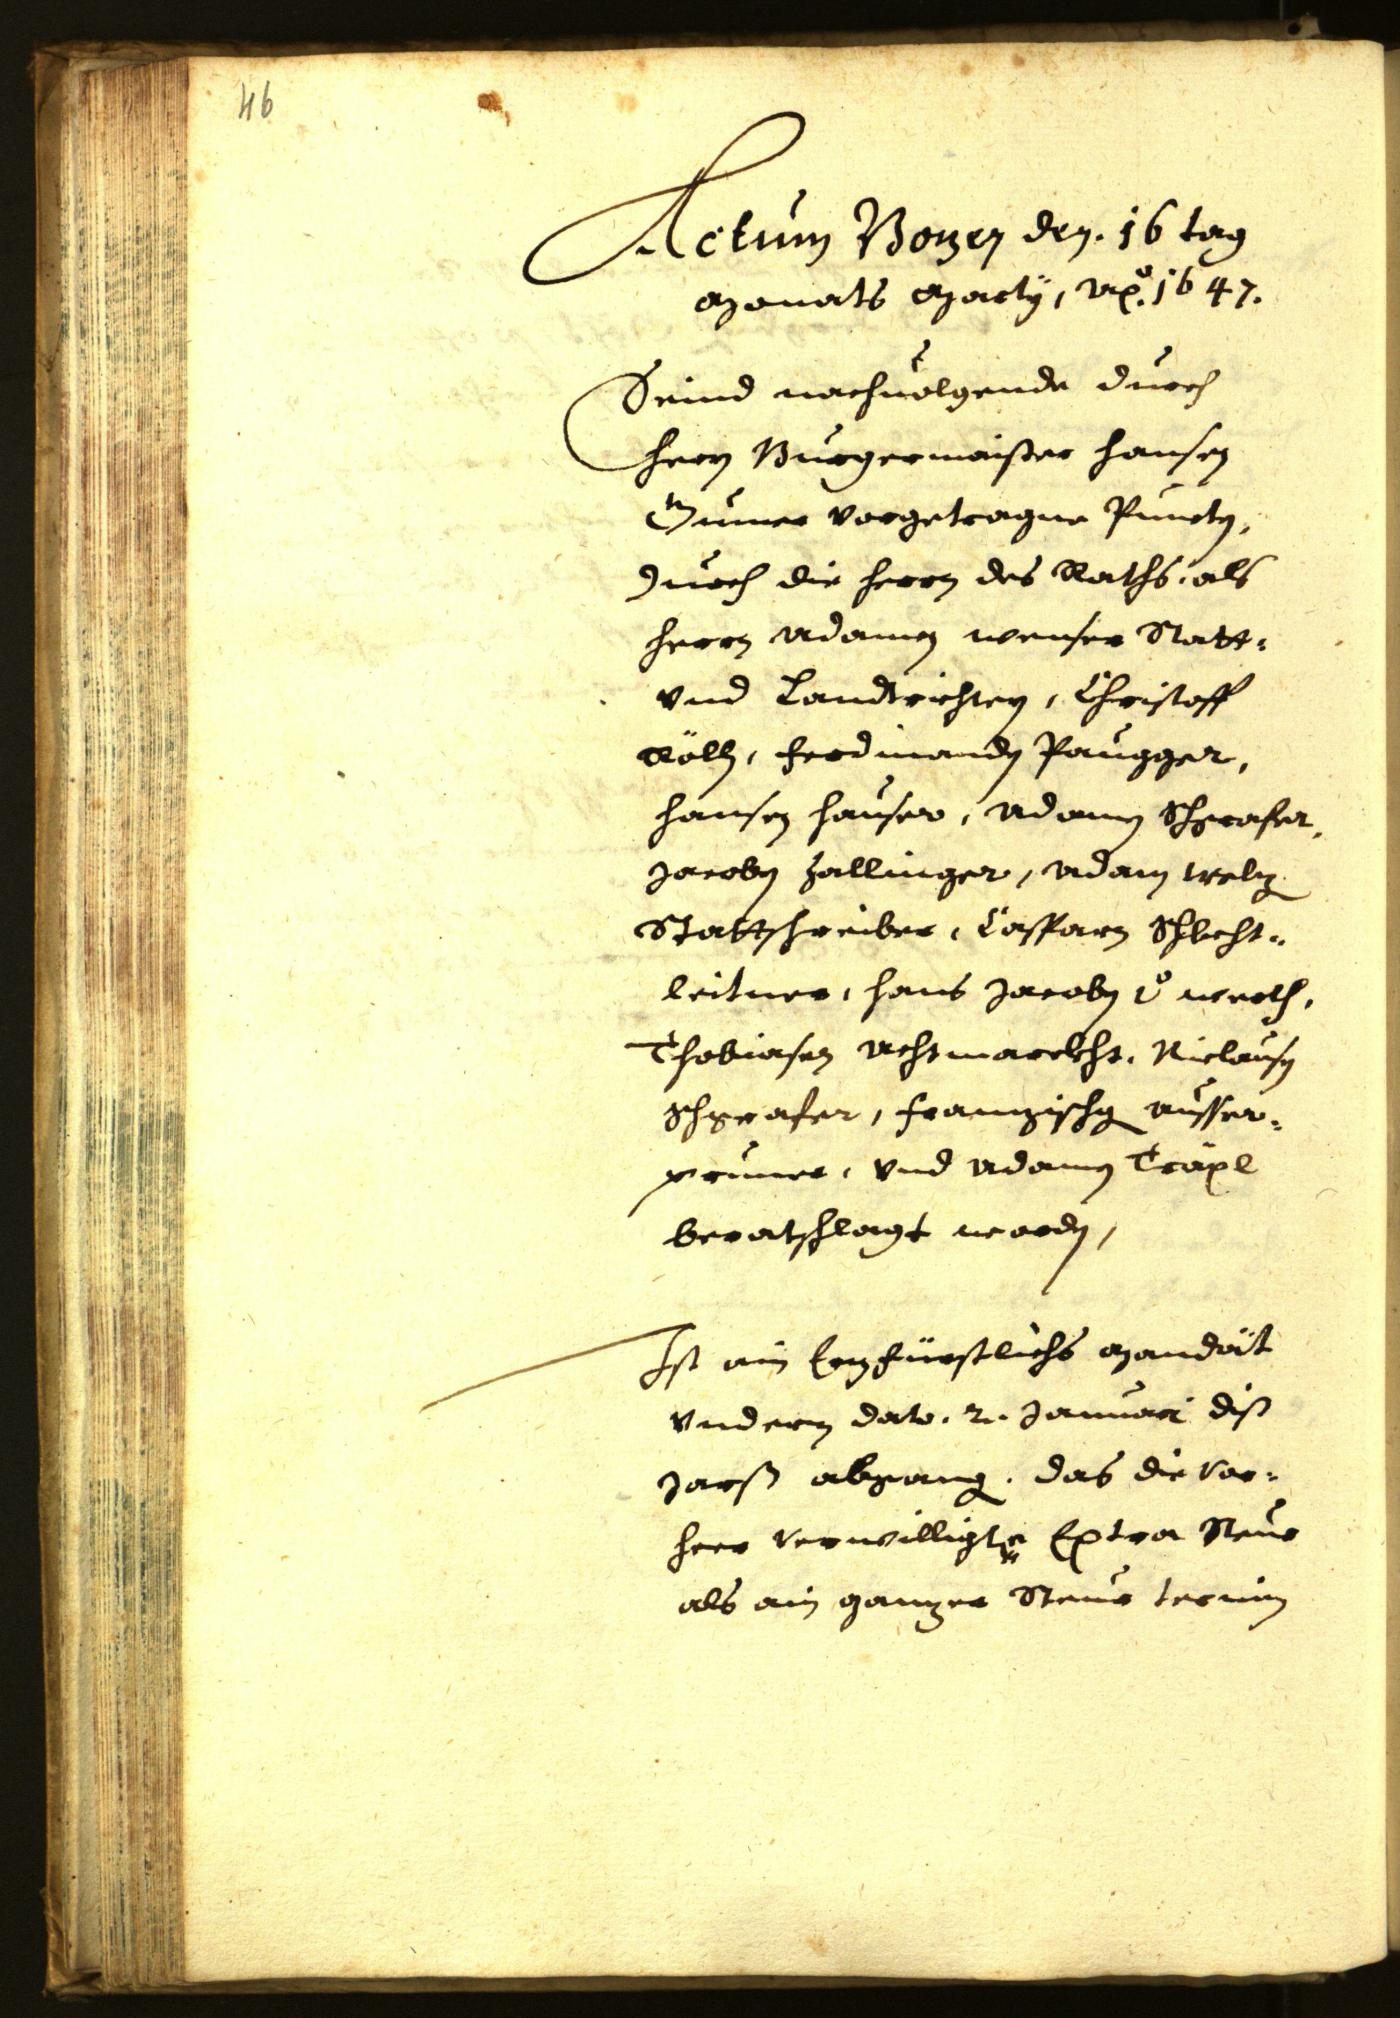 46
Actum Botzen den. 16 tag
Monats Marty, Ao. 1647.
Seind nachuolgende durch
herrn Burgermaister Hansen
Gumer vorgetragne Puncten,
Durch die herrn des Raths. als
herrn Adamen Wenser Statt-
vnd Landtrichtern, Christoff
Röll, Ferdinanden Paugger,
Hansen Hauser, Adamen Schgrafer,
Jacoben Zallinger, Adam Welz
Stattschreiber, Casparn Schlecht-
leitner, Hans Jacoben v. Werth,
Thobiasen Achtmarckht, Niclausen
Schgrafer, Franzischg Ausser-
prunner, vnd Adamen Träxl
beratschlagt worden,
Ist ain Erzfürstlichs Mandat
vnderm dato. 2. Januari diß
Jarß abgang. das die vor-
heer verwilligte Extra Steur
als ain ganzer Steur termin